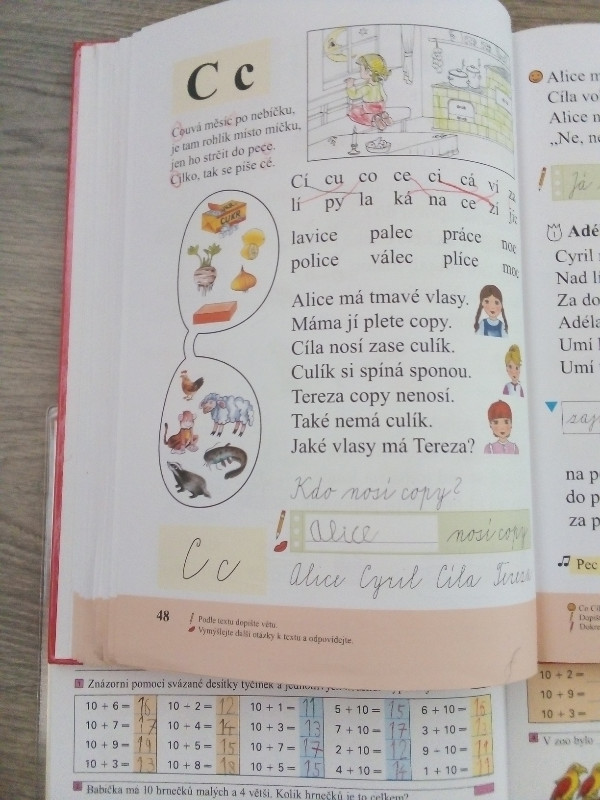 C c
Couvá měsíc po nebíčku,
je tam rohlík místo míčku,
jen ho strčit do pece.
Cilko, tak se píše cé.
CUKR
Cí cu co ce ci cá ví za
lí py la ká na ce zí jíc
lavice palec práce noc
police válec plíce moc
Alice má tmavé vlasy.
Máma jí plete copy.
Cíla nosí zase culík.
Culík si spíná sponou.
Tereza copy nenosí.
Také nemá culík.
Jaké vlasy má Tereza?
Kdo nosí copy?
Alice nosí copy
C c
Alice Cyril Cíla Tereza
48
Podle textu dopište větu.
Vymýšlejte další otázky k textu a odpovídejte.
Alice
Cíla
Alice
„Ne,
Já
Cyril
Nad
Za
Adéla
Umí
Umí
na
do
za p
Pec
Co
1 Znázorni pomocí svázané desítky tyčinek a
10 + 6 = 16 10 + 2 = 12 10 + 1 = 11 5 + 10 = 15 6 + 10 = 16
10 + 7 = 17 10 + 4 = 14 10 + 3 = 13 7 + 10 = 17 3 + 10 = 13
10 + 9 = 19 10 + 5 = 15 10 + 7 = 17 2 + 10 = 12 9 + 10 = 19
10 + 3 = 13 10 + 8 = 18 10 + 5 = 15 4 + 10 = 14 1 + 10 = 11
Babička má 10 hrnečků malých a 4 větší. Kolik hrnečků je to celkem?
10 + 2 =
10 + 9 =
10 + 3 =
4 V zoo bylo